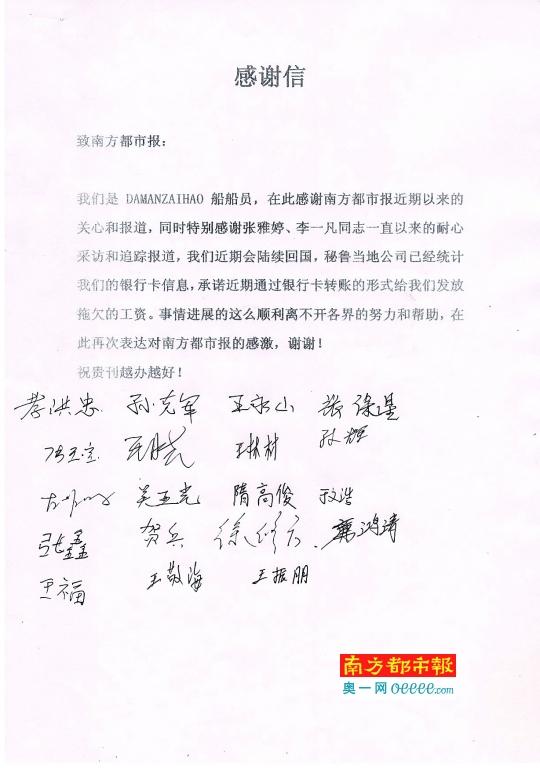 感谢信
致南方都市报：
我们是 DAMANZAIHAO 船船员，在此感谢南方都市报近期以来的
关心和报道，同时特别感谢张雅婷、李一凡同志一直以来的耐心
采访和追踪报道，我们近期会陆续回国，秘鲁当地公司已经统计
我们的银行卡信息，承诺近期通过银行卡转账的形式给我们发放
拖欠的工资。事情进展的这么顺利离不开各界的努力和帮助，在
此再次表达对南方都市报的感激，谢谢！
祝贵刊越办越好！
孙克军
王林材
吴玉光 隋高俊
张鑫 贺兵
王福 王敬海 王振朋
南方都市報
奥一网 oeeee.com